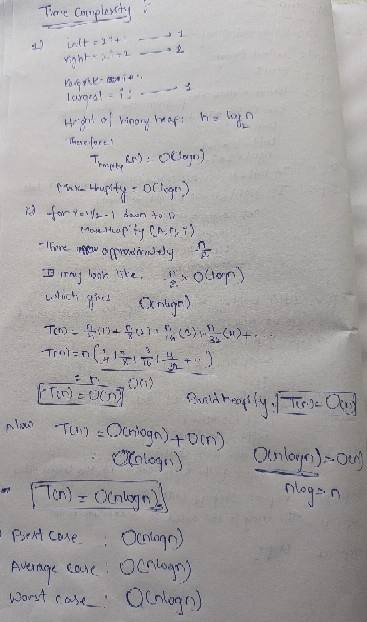 Time Complexity :
1) left = 2i+1 → 1
right = 2i+2 → 2
largest = i; → 3
Height of binary heap: h = log₂n
Therefore:
T heapify (n) = O(logn)
Max heapify = O(logn)
2) for i = n/2 - 1 down to 0
Max heapify (A, n, i)
There approximately n/2
It may look like. n/2 × O(logn)
which gives O(nlogn)
T(n) = n/4(1) + n/8(2) + n/16(3) + n/32(4) + ...
T(n) = n(1/4 + 2/8 + 3/16 + 4/32 + ...)
= n. O(1)
T(n) = O(n)
Build heapify. T(n) = O(n)
Now T(n) = O(nlogn) + O(n)
: O(nlogn)
O(nlogn) > O(n)
nlog > n
T(n) = O(nlogn)
Best case : O(nlogn)
Average case : O(nlogn)
Worst case : O(nlogn)